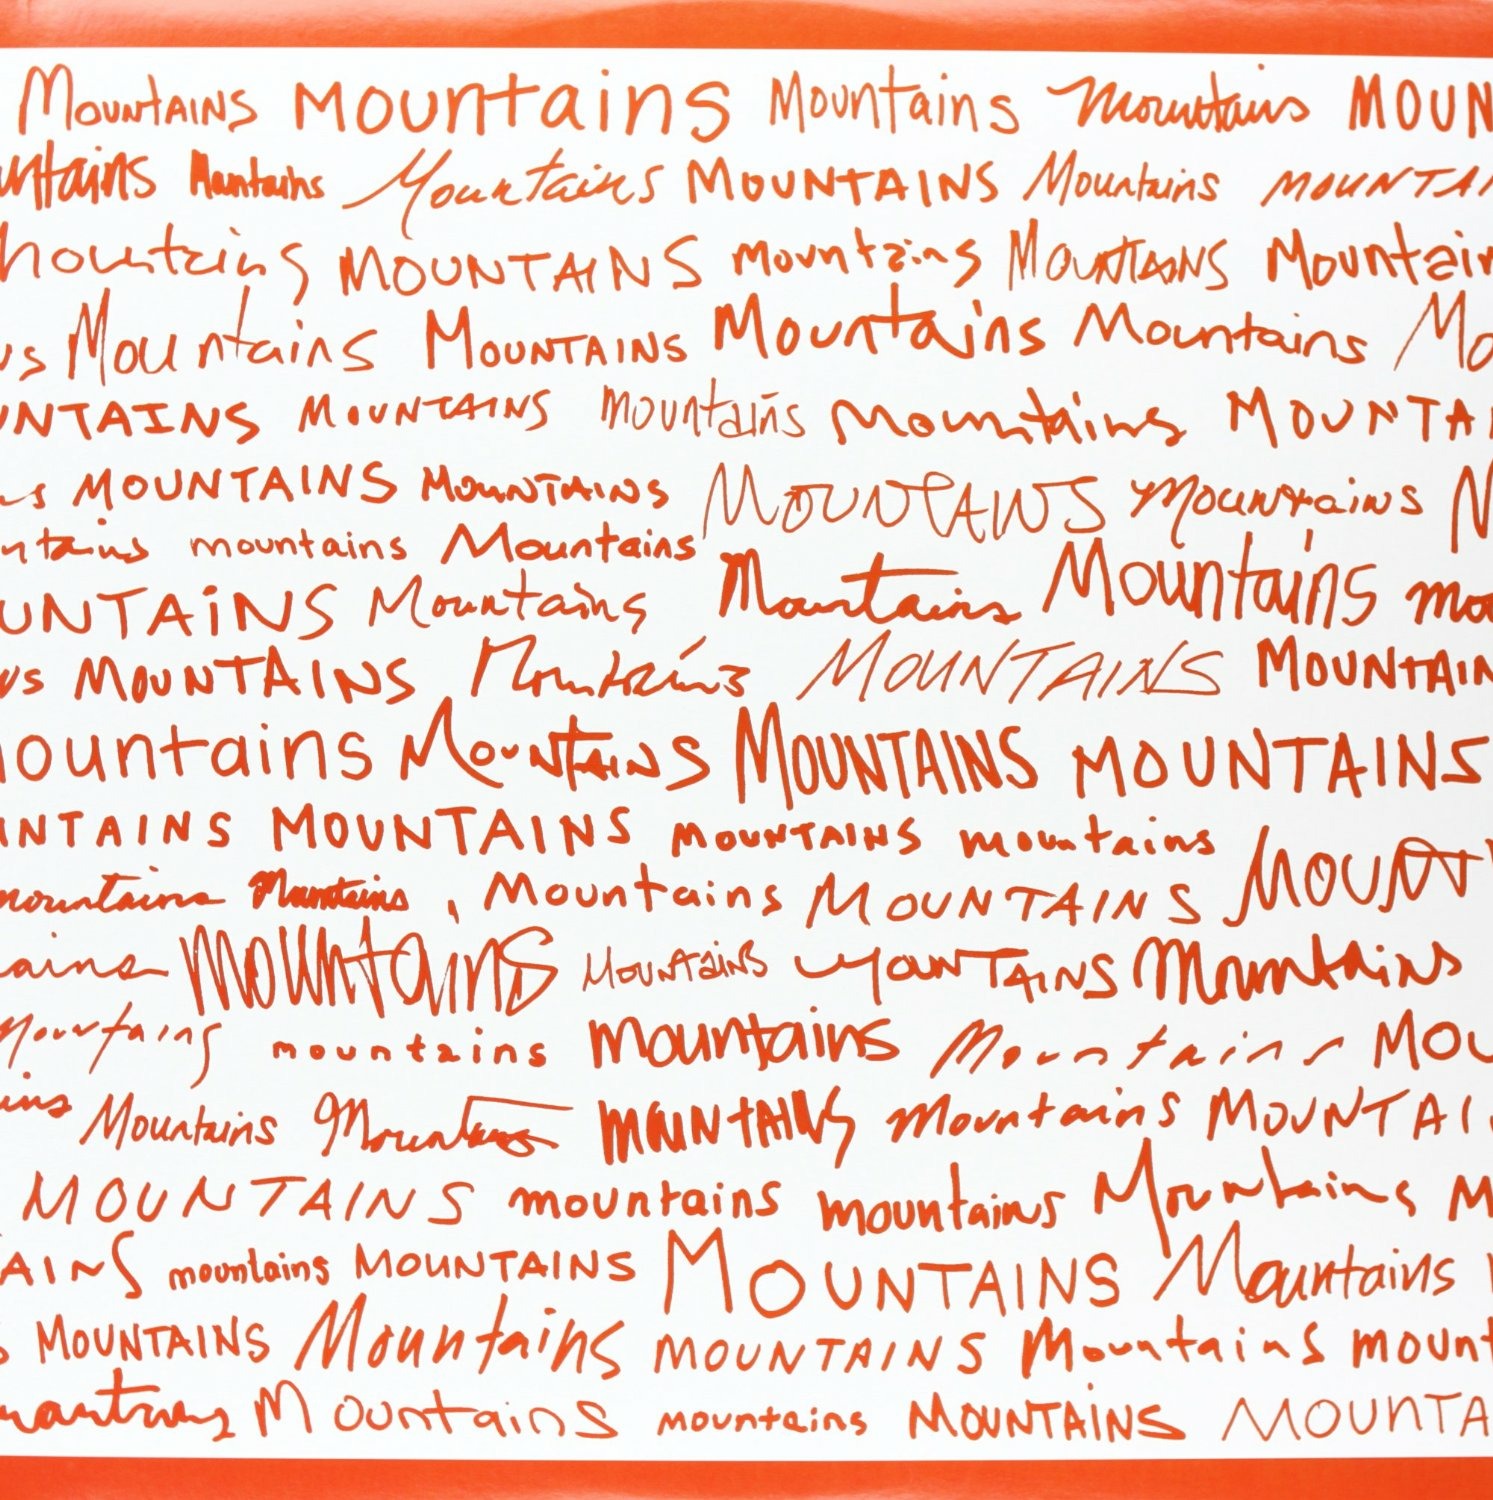 Mountains mountains Mountains Mountains MOUN
untains Mountains Mountains MOUNTAINS Mountains MOUNTAI
Mountains MOUNTAINS mountains MOUNTAINS Mountain
ns Mountains MOUNTAINS Mountains Mountains Mo
UNTAINS MOUNTAINS mountains Mountains MOUNTAI
ns MOUNTAINS MOUNTAINS MOUNTAINS Mountains M
ntains mountains Mountains
UNTAiNS Mountains Mountains Mountains mou
NS MOUNTAINS Mountains MOUNTAINS MOUNTAIN
mountains Mountains MOUNTAINS MOUNTAINS
NTAINS MOUNTAINS MOUNTAINS mountains MOUNT
mountains Mountains , Mountains MOUNTAINS
ains mountains MOUNTAINS MOUNTAINS Mountains
Mountains mountains mountains Mountains MOU
ins Mountains Mountains MOUNTAINS Mountains MOUNTAI
MOUNTAINS mountains mountains Mountains M
AINS mountains MOUNTAINS MOUNTAINS Mountains
S MOUNTAINS Mountains MOUNTAINS Mountains mount
Mountains mountains MOUNTAINS MOUNTA